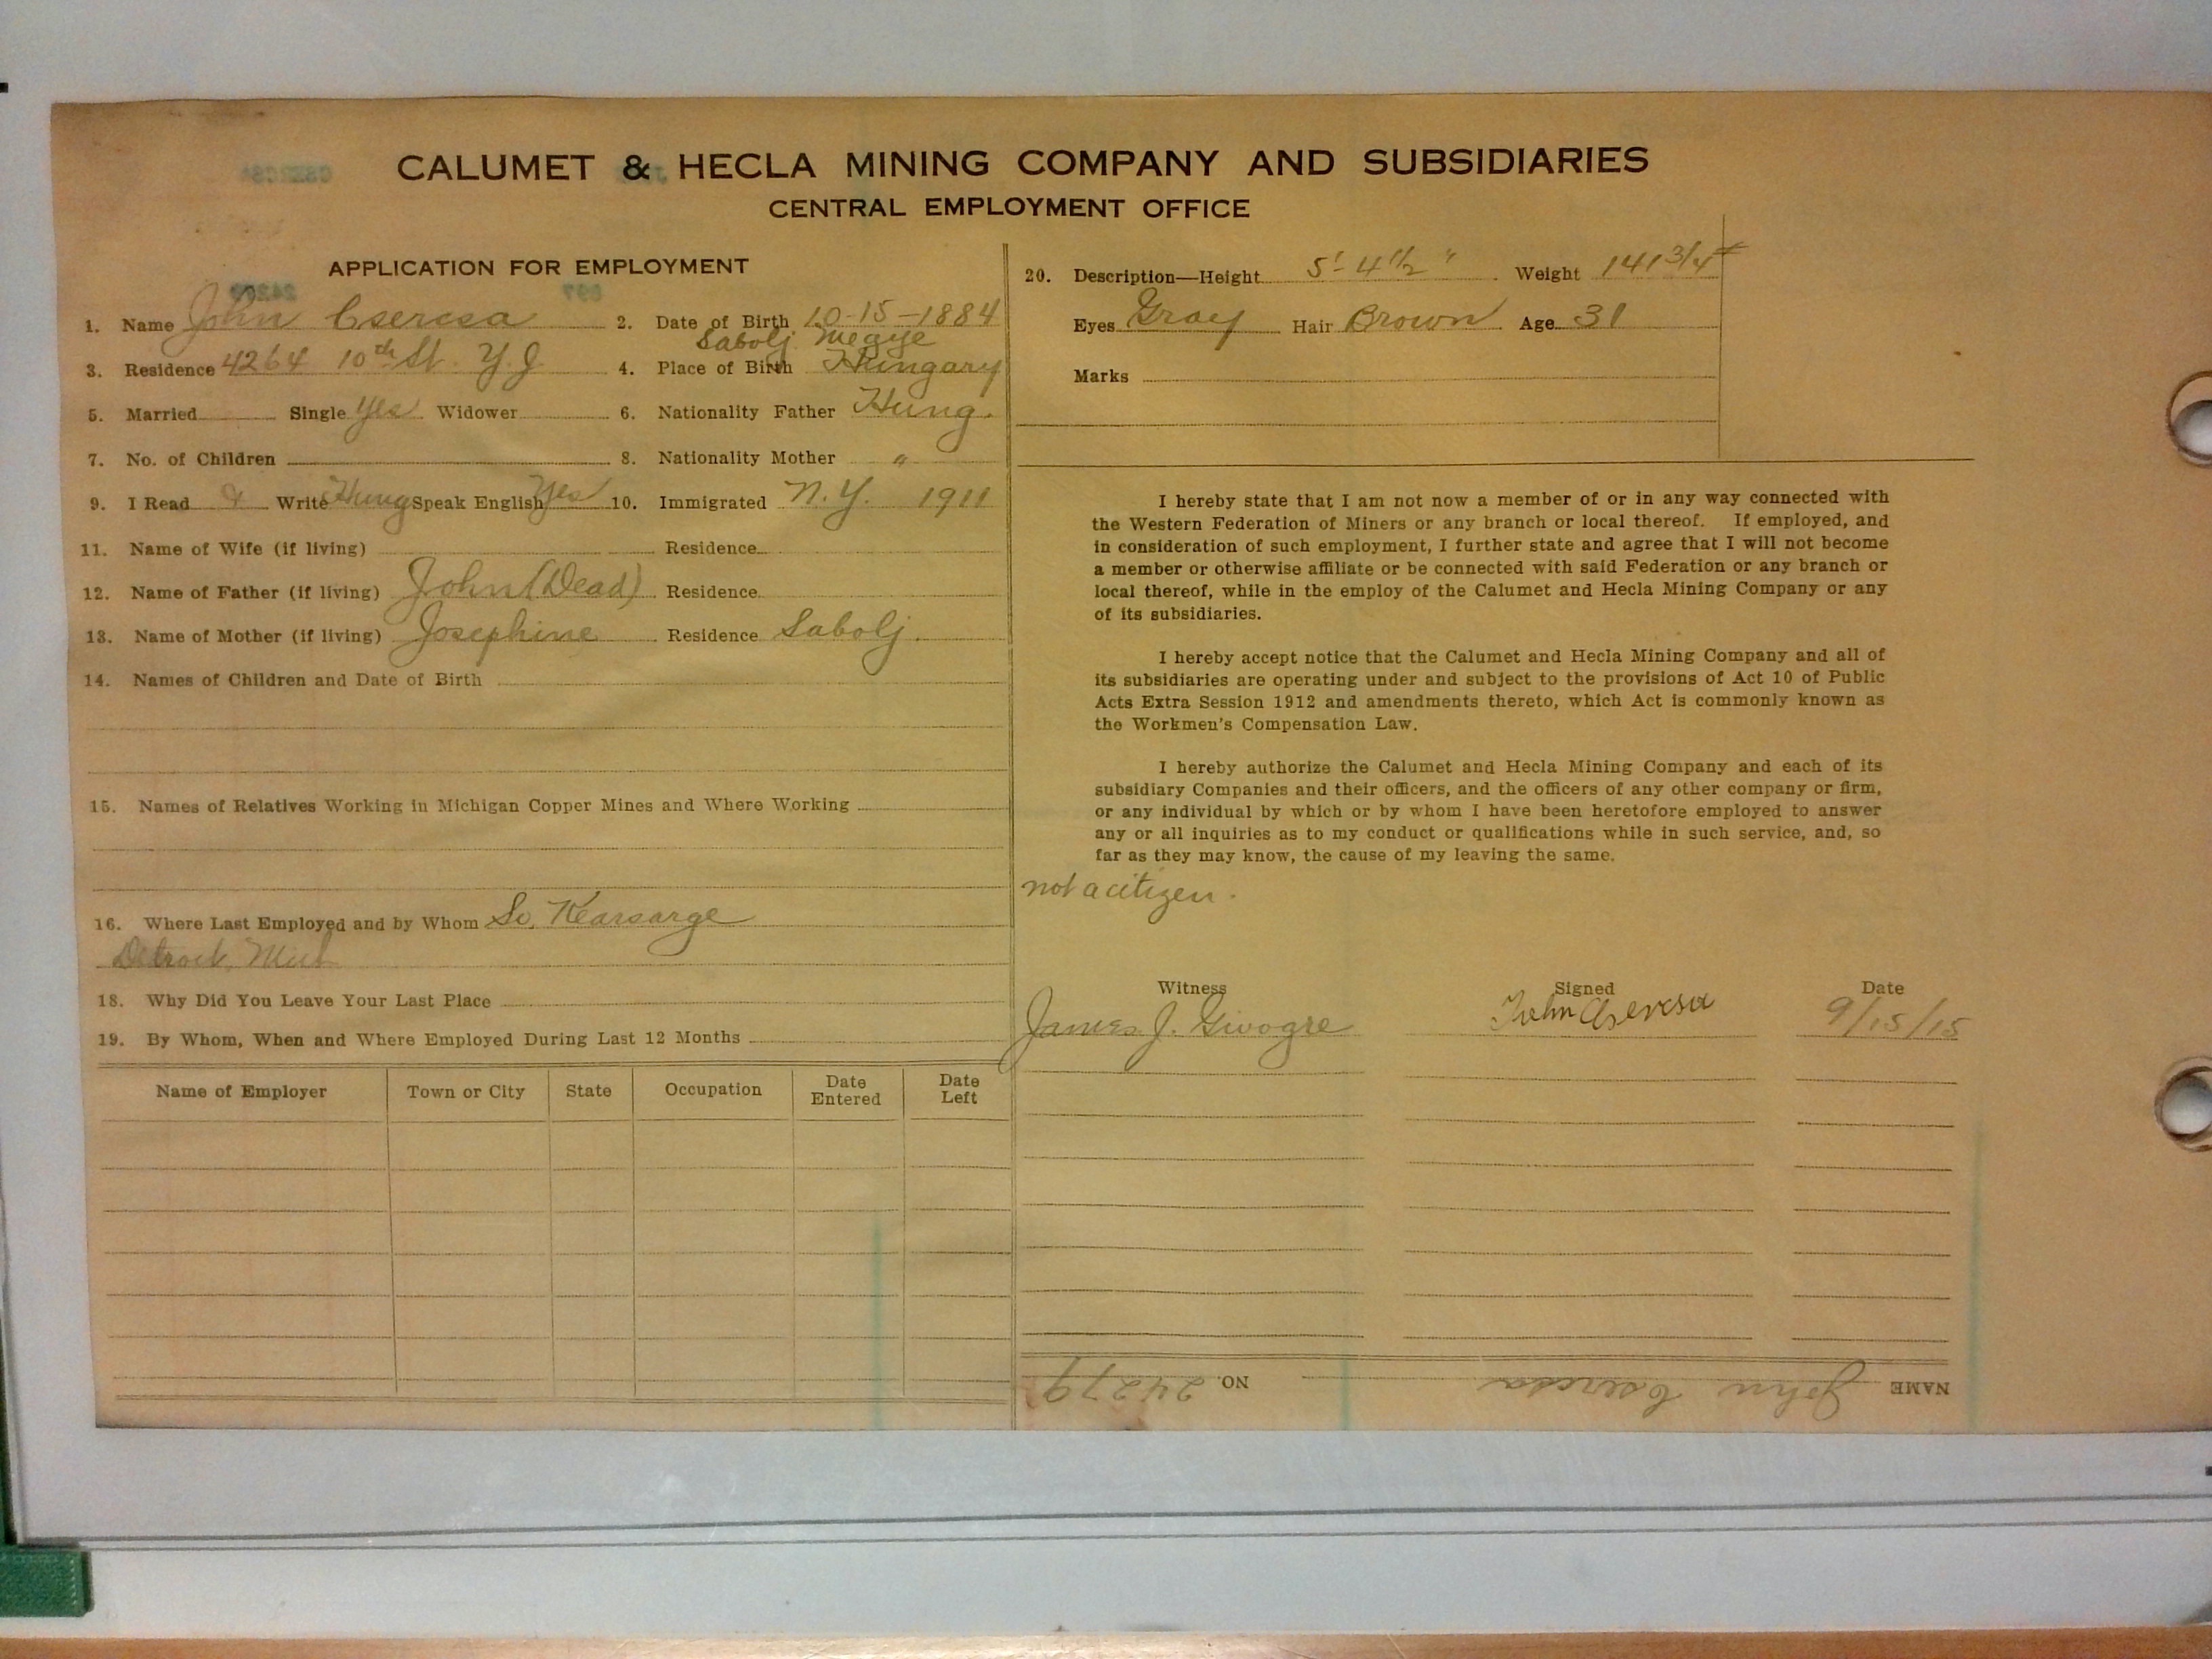 CALUMET & HECLA MINING COMPANY AND SUBSIDIARIES
CENTRAL EMPLOYMENT OFFICE
APPLICATION FOR EMPLOYMENT
1. Name John Cseresa 2. Date of Birth 10-15-1884
Sabolj Megye
3. Residence 4264 10th St. Y.J. 4. Place of Birth Hungary
5. Married Single Yes Widower 6. Nationality Father Hung.
7. No. of Children 8. Nationality Mother "
9. I Read & Write Hung Speak English Yes 10. Immigrated N.Y. 1911
11. Name of Wife (if living) Residence
12. Name of Father (if living) John (Dead) Residence
13. Name of Mother (if living) Josephine Residence Sabolj.
14. Names of Children and Date of Birth
15. Names of Relatives Working in Michigan Copper Mines and Where Working
16. Where Last Employed and by Whom So. Kearsarge
Detroit, Mich
18. Why Did You Leave Your Last Place
19. By Whom, When and Where Employed During Last 12 Months
Name of Employer Town or City State Occupation Date Entered Date Left
20. Description—Height 5'-4 1/2" Weight 141 3/4 #
Eyes Gray Hair Brown Age 31
Marks
I hereby state that I am not now a member of or in any way connected with
the Western Federation of Miners or any branch or local thereof. If employed, and
in consideration of such employment, I further state and agree that I will not become
a member or otherwise affiliate or be connected with said Federation or any branch or
local thereof, while in the employ of the Calumet and Hecla Mining Company or any
of its subsidiaries.
I hereby accept notice that the Calumet and Hecla Mining Company and all of
its subsidiaries are operating under and subject to the provisions of Act 10 of Public
Acts Extra Session 1912 and amendments thereto, which Act is commonly known as
the Workmen's Compensation Law.
I hereby authorize the Calumet and Hecla Mining Company and each of its
subsidiary Companies and their officers, and the officers of any other company or firm,
or any individual by which or by whom I have been heretofore employed to answer
any or all inquiries as to my conduct or qualifications while in such service, and, so
far as they may know, the cause of my leaving the same.
not a citizen.
Witness Signed Date
James J. Givogre John Cseresa 9/15/15
NAME John Cseresa NO. 24279